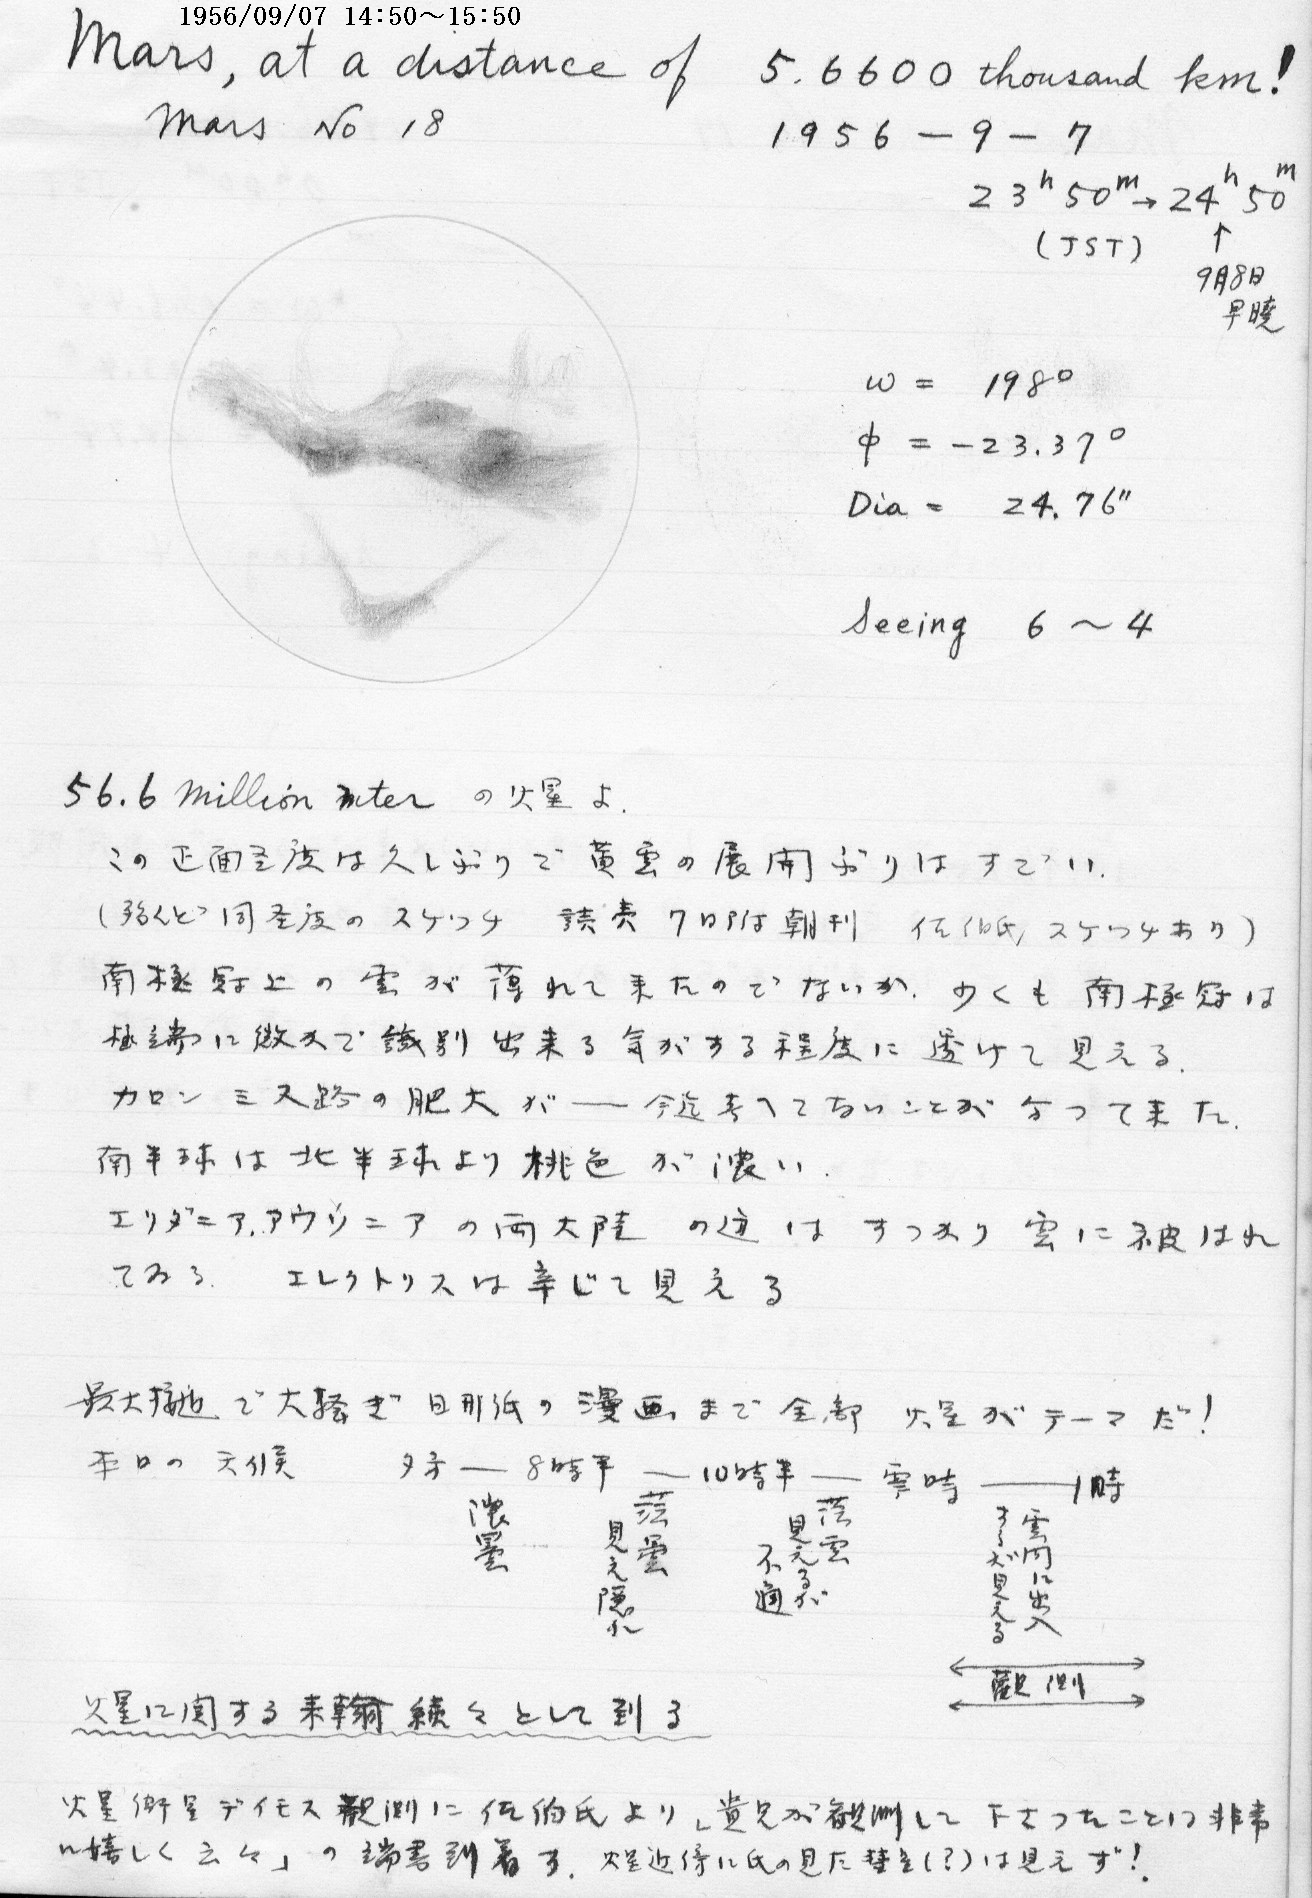 1956/09/07 14:50～15:50
Mars, at a distance of 5.6600 thousand km!
Mars No 18
1956-9-7
23h50m→24h50m
(JST) ↑
9月8日
早暁
ω = 198°
φ = -23.37°
Dia = 24.76"
Seeing 6～4
56.6 million meter の火星よ.
この正面经度は久しぶりで黄雲の展開ぶりはすごい.
(殆んど同经度のスケッチ 読売 7日 は朝刊 佐伯氏 スケッチあり)
南極冠上の雲が薄れて来たのでないか. 少くも南極冠は
極端に微かで識別出来る気がする程度に透けて見える.
カロン 三叉路の肥大が——今迄考へてないことが分つて来た.
南半球は北半球より桃色が濃い.
エリダニア,アウソニアの両大陸の辺はすつかり雲に被はれ
てゐる. エレクトリスは辛じて見える
最大接近で大騒ぎ 旦那紙の漫画まで全部 火星がテーマだ!
本日の天候 夕方—8時半—10時半—零時——1時
濃曇
薄曇
見え隠れ
薄雲
見えるが
不適
雲間に出入
するが見える
観測
火星に関する来翰続々として到る
火星衛星デイモス観測に佐伯氏より「貴兄が観測して下さつたことは非常
に嬉しく云々」の端書到着す. 火星近傍に氏の見た彗星(?)は見えず!